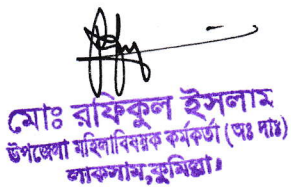 মোঃ রফিকুল ইসলাম
উপজেলা মহিলাবিষয়ক কর্মকর্তা (অঃ দাঃ)
লাকসাম,কুমিল্লা।